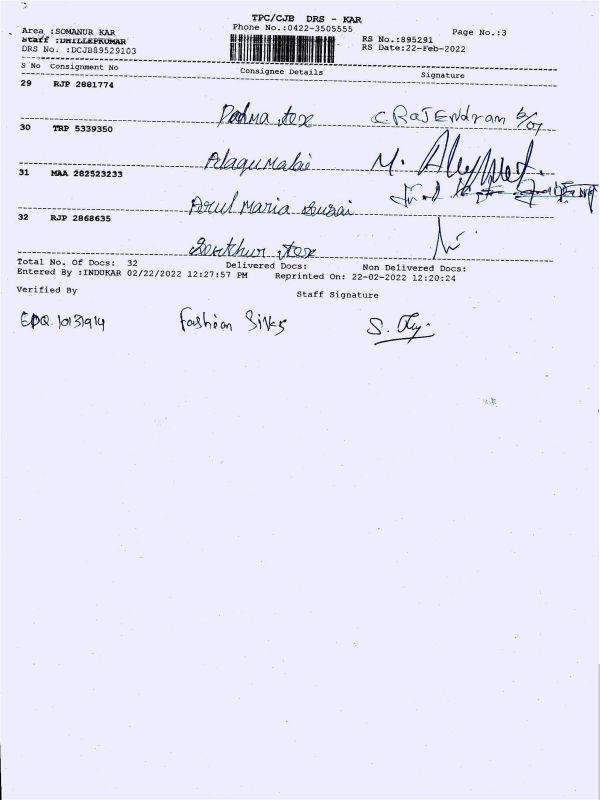 TPC/CJB DRS - KAR
Area :SOMANUR KAR Phone No.:0422-3505555 Page No.:3
Staff :DHILLEPKUMAR RS No.:895291
DRS No. :DCJB89529103 RS Date:22-Feb-2022
S No Consignment No Consignee Details Signature
29 RJP 2881774
Padma tex C RAJENdram
30 TRP 5339350
Alagumalai M.
31 MAA 282523233
Arul Maria Susai
32 RJP 2868635
tex
Total No. Of Docs: 32 Delivered Docs: Non Delivered Docs:
Entered By :INDUKAR 02/22/2022 12:27:57 PM Reprinted On: 22-02-2022 12:20:24
Verified By Staff Signature
Fashion Silks S.